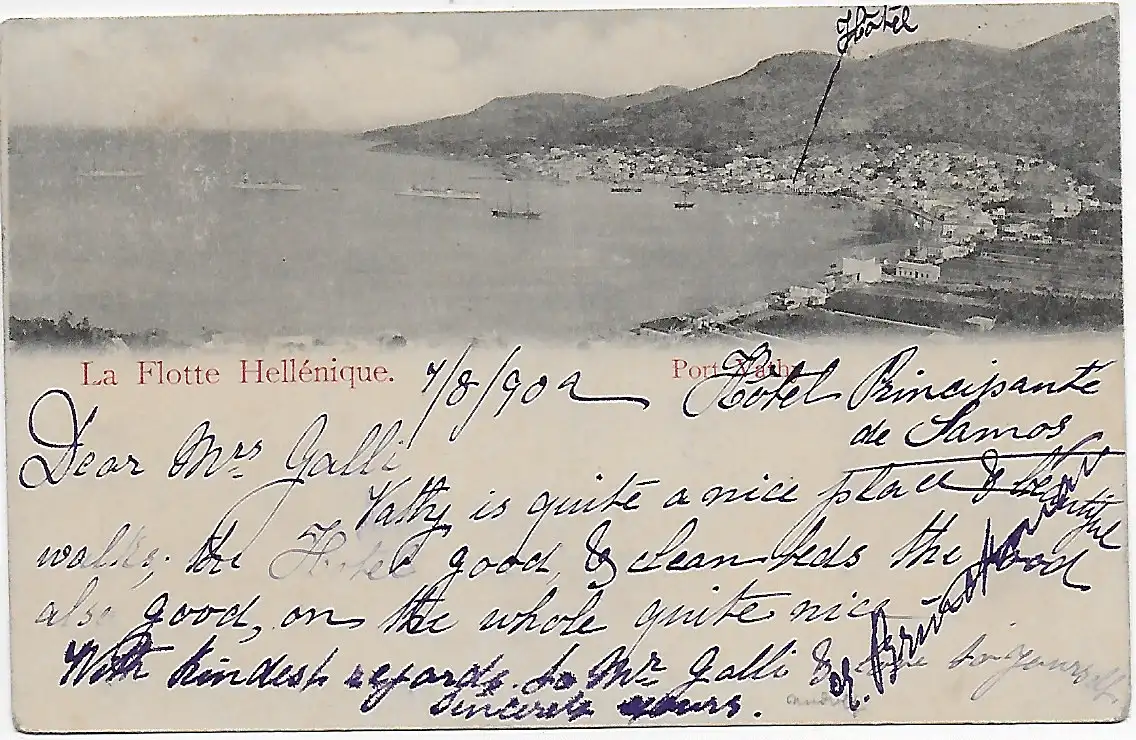 Hôtel
La Flotte Hellénique.
Port Vathy
7/8/902
Hôtel Principante
de Samos
Dear Mrs Galli
Vathy is quite a nice place & beautiful
walks; the Hotel good, & clean beds the food
also good, on the whole quite nice
With kindest regards to Mr Galli & to yourself
sincerely yours.